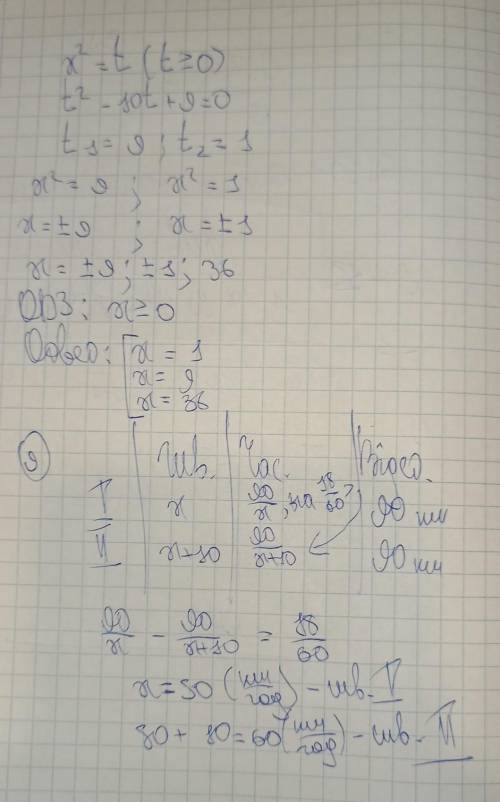 x² = t (t ≥ 0)
t² - 10t + 9 = 0
t₁ = 9 ; t₂ = 1
x² = 9 ; x² = 1
x = ±9 ; x = ±1
x = ±9 ; ±1 ; 36
ОДЗ: x ≥ 0
x = 1
x = 9
x = 36
9
Шв. Час. Відст.
I x 90/x , на 18/60 > 90 км
II x+10 90/x+10 90 км
90/x - 90/x+10 = 18/60
x = 50 (км/год) - шв. I
50 + 10 = 60 (км/год) - шв. II